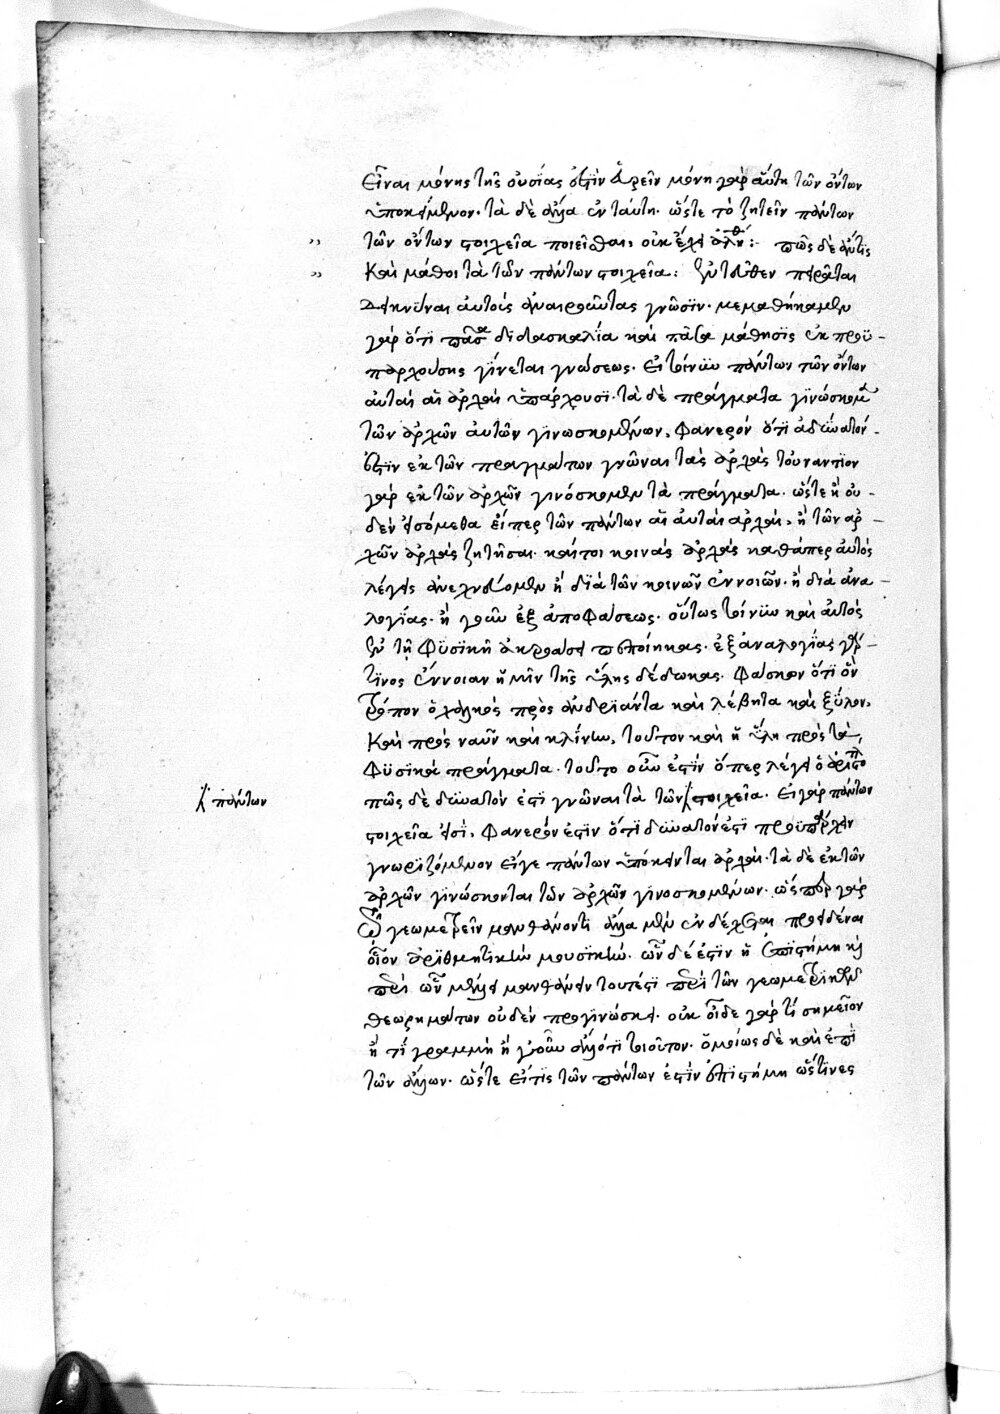 εἶναι μόνης τῆς οὐσίας ἐστὶν εὑρεῖν μόνη γὰρ αὕτη τῶν ὄντων
ὑποκείμενον· τὰ δὲ ἄλλα ἐν ταύτῃ. ὥστε τὸ ζητεῖν πάντων
τῶν ὄντων στοιχεῖα ποιεῖσθαι, οὐκ ἔχει ἀληθ: πῶς δὲ ἄν τις
καὶ μάθοι τὰ τῶν πάντων στοιχεῖα: ἐντεῦθεν πειρᾶται
δεικνύναι αὐτοὺς ἀναιροῦντας γνῶσιν· μεμαθήκαμεν
γὰρ ὅτι πᾶσα διδασκαλία καὶ πᾶσα μάθησις ἐκ προϋ-
παρχούσης γίνεται γνώσεως. εἰ τοίνυν πάντων τῶν ὄντων
αὐταὶ αἱ ἀρχαὶ ὑπάρχουσι· τὰ δὲ πράγματα γινώσκομεν
τῶν ἀρχῶν αὐτῶν γινωσκομένων, φανερὸν ὅτι ἀδύνατόν
ἐστιν ἐκ τῶν πραγμάτων γνῶναι τὰς ἀρχὰς τοὐναντίον
γὰρ ἐκ τῶν ἀρχῶν γινόσκομεν τὰ πράγματα. ὥστε ἢ οὐ-
δὲν εἰσόμεθα εἴπερ τῶν πάντων αἱ αὐταὶ ἀρχαὶ, ἢ τῶν ἀρ-
χῶν ἀρχὰς ζητῆσαι. καίτοι κοινὰς ἀρχὰς καθάπερ αὐτὸς
λέγεις ἀνιχνεύομεν ἢ διὰ τῶν κοινῶν ἐννοιῶν. ἢ διὰ ἀνα-
λογίας. ἢ γοῦν ἐξ ἀποφάσεως. οὕτως τοίνυν καὶ αὐτὸς
ἐν τῇ φυσικῇ ἀκροάσει πεποίηκας. ἐξ ἀναλογίας γάρ
τινος ἔννοιαν ἡμῖν τῆς ὕλης δέδωκας. φάσκων ὅτι ὃν
τρόπον ὁ χαλκὸς πρὸς ἀνδριάντα καὶ λέβητα καὶ ξύλον,
καὶ πρὸς ναῦν καὶ κλίνην, τοῦτον καὶ ἡ ὕλη πρὸς τὰ
φυσικὰ πράγματα. τοῦτο οὖν ἐστὶν ὅπερ λέγει ὁ ἀριστο
πῶς δὲ δυνατὸν ἐστὶ γνῶναι τὰ τῶν στοιχεῖα. εἰ γὰρ πάντων
πάντων
στοιχεῖα εἰσὶ, φανερὸν ἐστὶν ὅτι δυνατὸν ἐστὶ προϋπάρχειν
γνωριζόμενον εἴγε πάντων ὑπόκεινται ἀρχαὶ. τὰ δὲ ἐκ τῶν
ἀρχῶν γινώσκονται τῶν ἀρχῶν γινοσκομένων. ὥσπερ γὰρ
τῷ γεωμετρεῖν μανθάνοντι ἄλλα μὲν ἐνδέχεται προειδέναι
οἷον ἀριθμητικὴν μουσικήν. ὧν δέ ἐστιν ἡ ἐπιστήμη καὶ
περὶ ὧν μέλλει μανθάνειν τουτέστι περὶ τῶν γεωμετρικῶν
θεωρημάτων οὐδὲν προγινώσκει. οὐκ οἶδε γὰρ τί σημεῖον
ἢ τί γραμμὴ ἢ γοῦν ἄλλο τι τοιοῦτον. ὁμοίως δὲ καὶ ἐπὶ
τῶν ἄλλων. ὥστε εἴ τις τῶν πάντων ἐστὶν ἐπιστήμη ὥς τινες